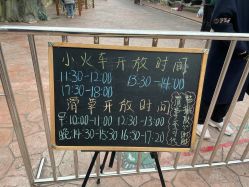 小火车开放时间
11:30-12:00 13:30-14:00
17:30-18:00
滑草开放时间
早10:00-11:00
晚14:30-15:30 16:50-17:20